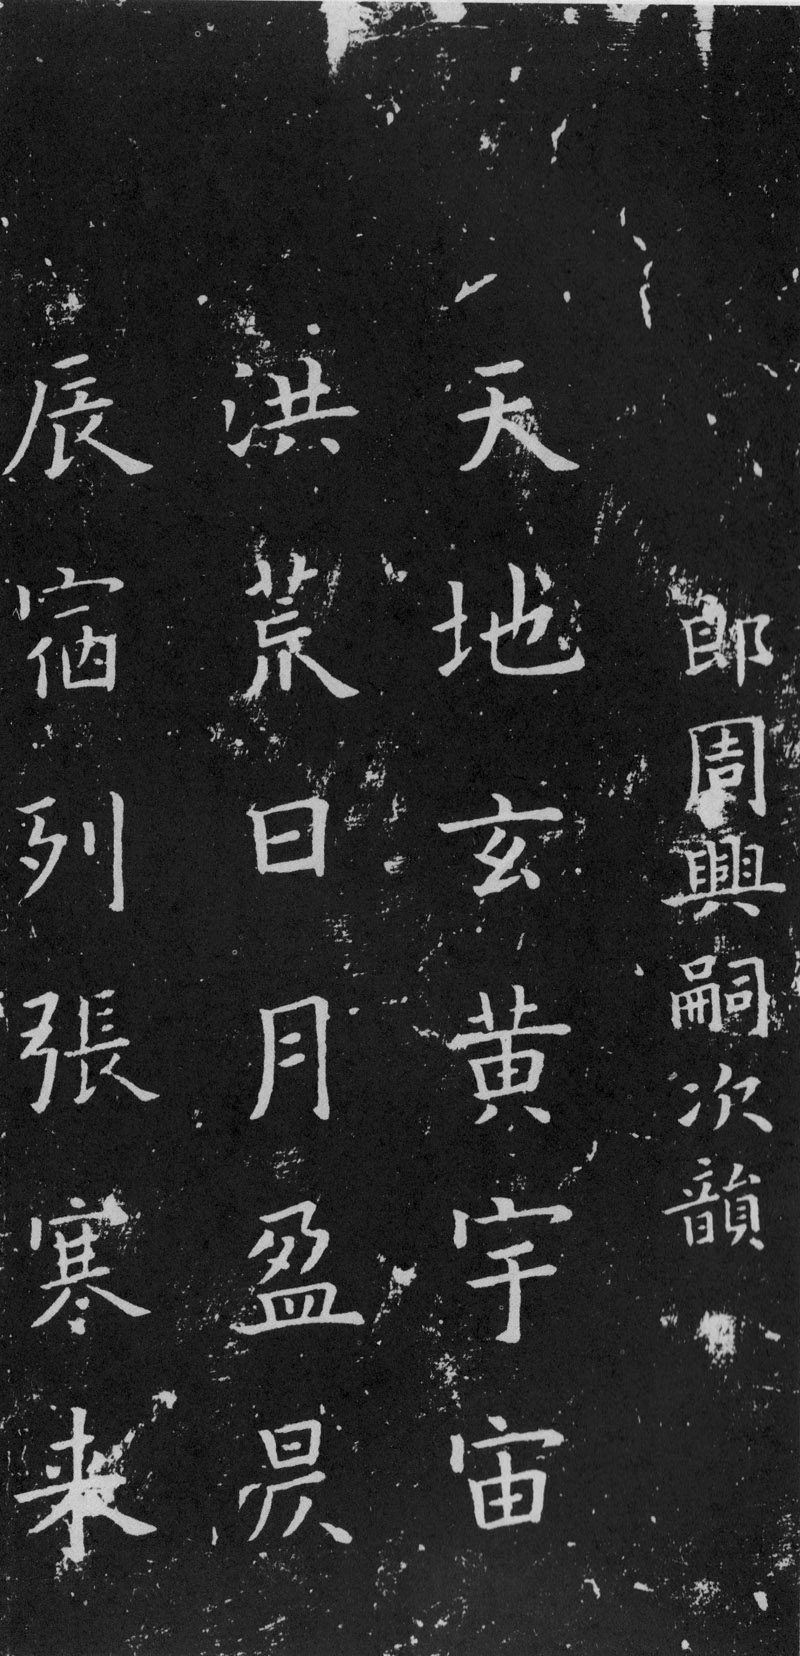 郎周興嗣次韻
天地玄黄宇宙
洪荒日月盈昃
辰宿列張寒来